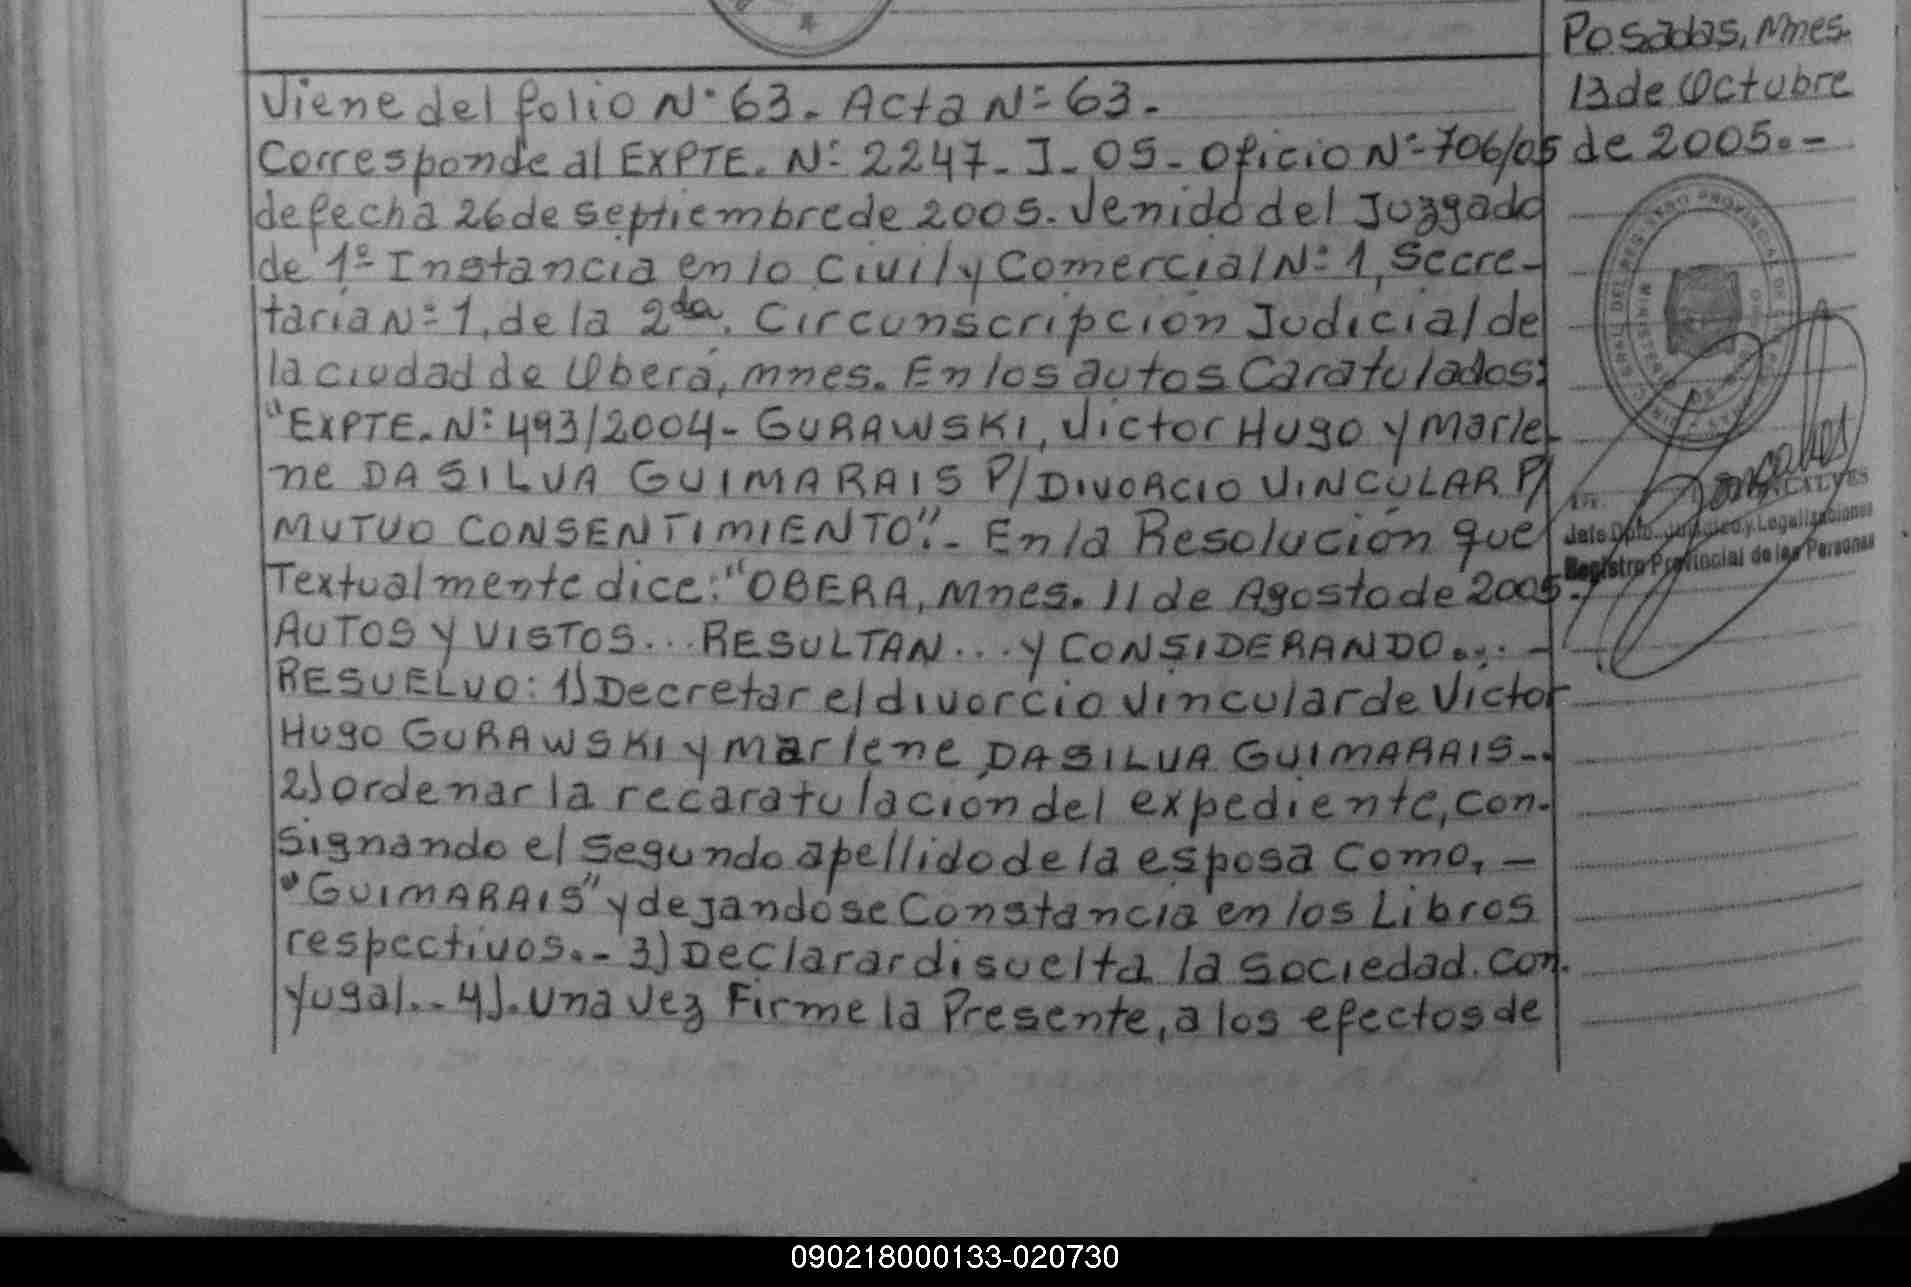 Viene del folio N° 63. Acta N° 63.
Corresponde al EXPTE. N° 2247-J-05- Oficio N° 706/05
de fecha 26 de septiembre de 2005. Venido del Juzgado
de 1° Instancia en lo Civil y Comercial N° 1, Secre-
taría N° 1, de la 2da. Circunscripción Judicial de
la ciudad de Oberá, Mnes. En los autos Caratulados:
"EXPTE. N° 493/2004- GURAWSKI, Victor Hugo y Marle-
ne DA SILVA GUIMARAIS P/ DIVORCIO VINCULAR P/
MUTUO CONSENTIMIENTO".- En la Resolución que
Textualmente dice: "OBERA, Mnes. 11 de Agosto de 2005.
AUTOS Y VISTOS... RESULTAN... Y CONSIDERANDO... -
RESUELVO: 1) Decretar el divorcio vincular de Victor
Hugo GURAWSKI y Marlene DA SILVA GUIMARAIS-.
2) Ordenar la recaratulación del expediente, con-
signando el segundo apellido de la esposa como, -
"GUIMARAIS" y dejandose Constancia en los Libros
respectivos.- 3) Declarar disuelta la sociedad con-
yugal.- 4). Una vez Firme la Presente, a los efectos de
Posadas, Mnes.
13 de Octubre
de 2005.-
Jefe Dpto. Jurídico y Legalizaciones
Registro Provincial de las Personas
090218000133-020730